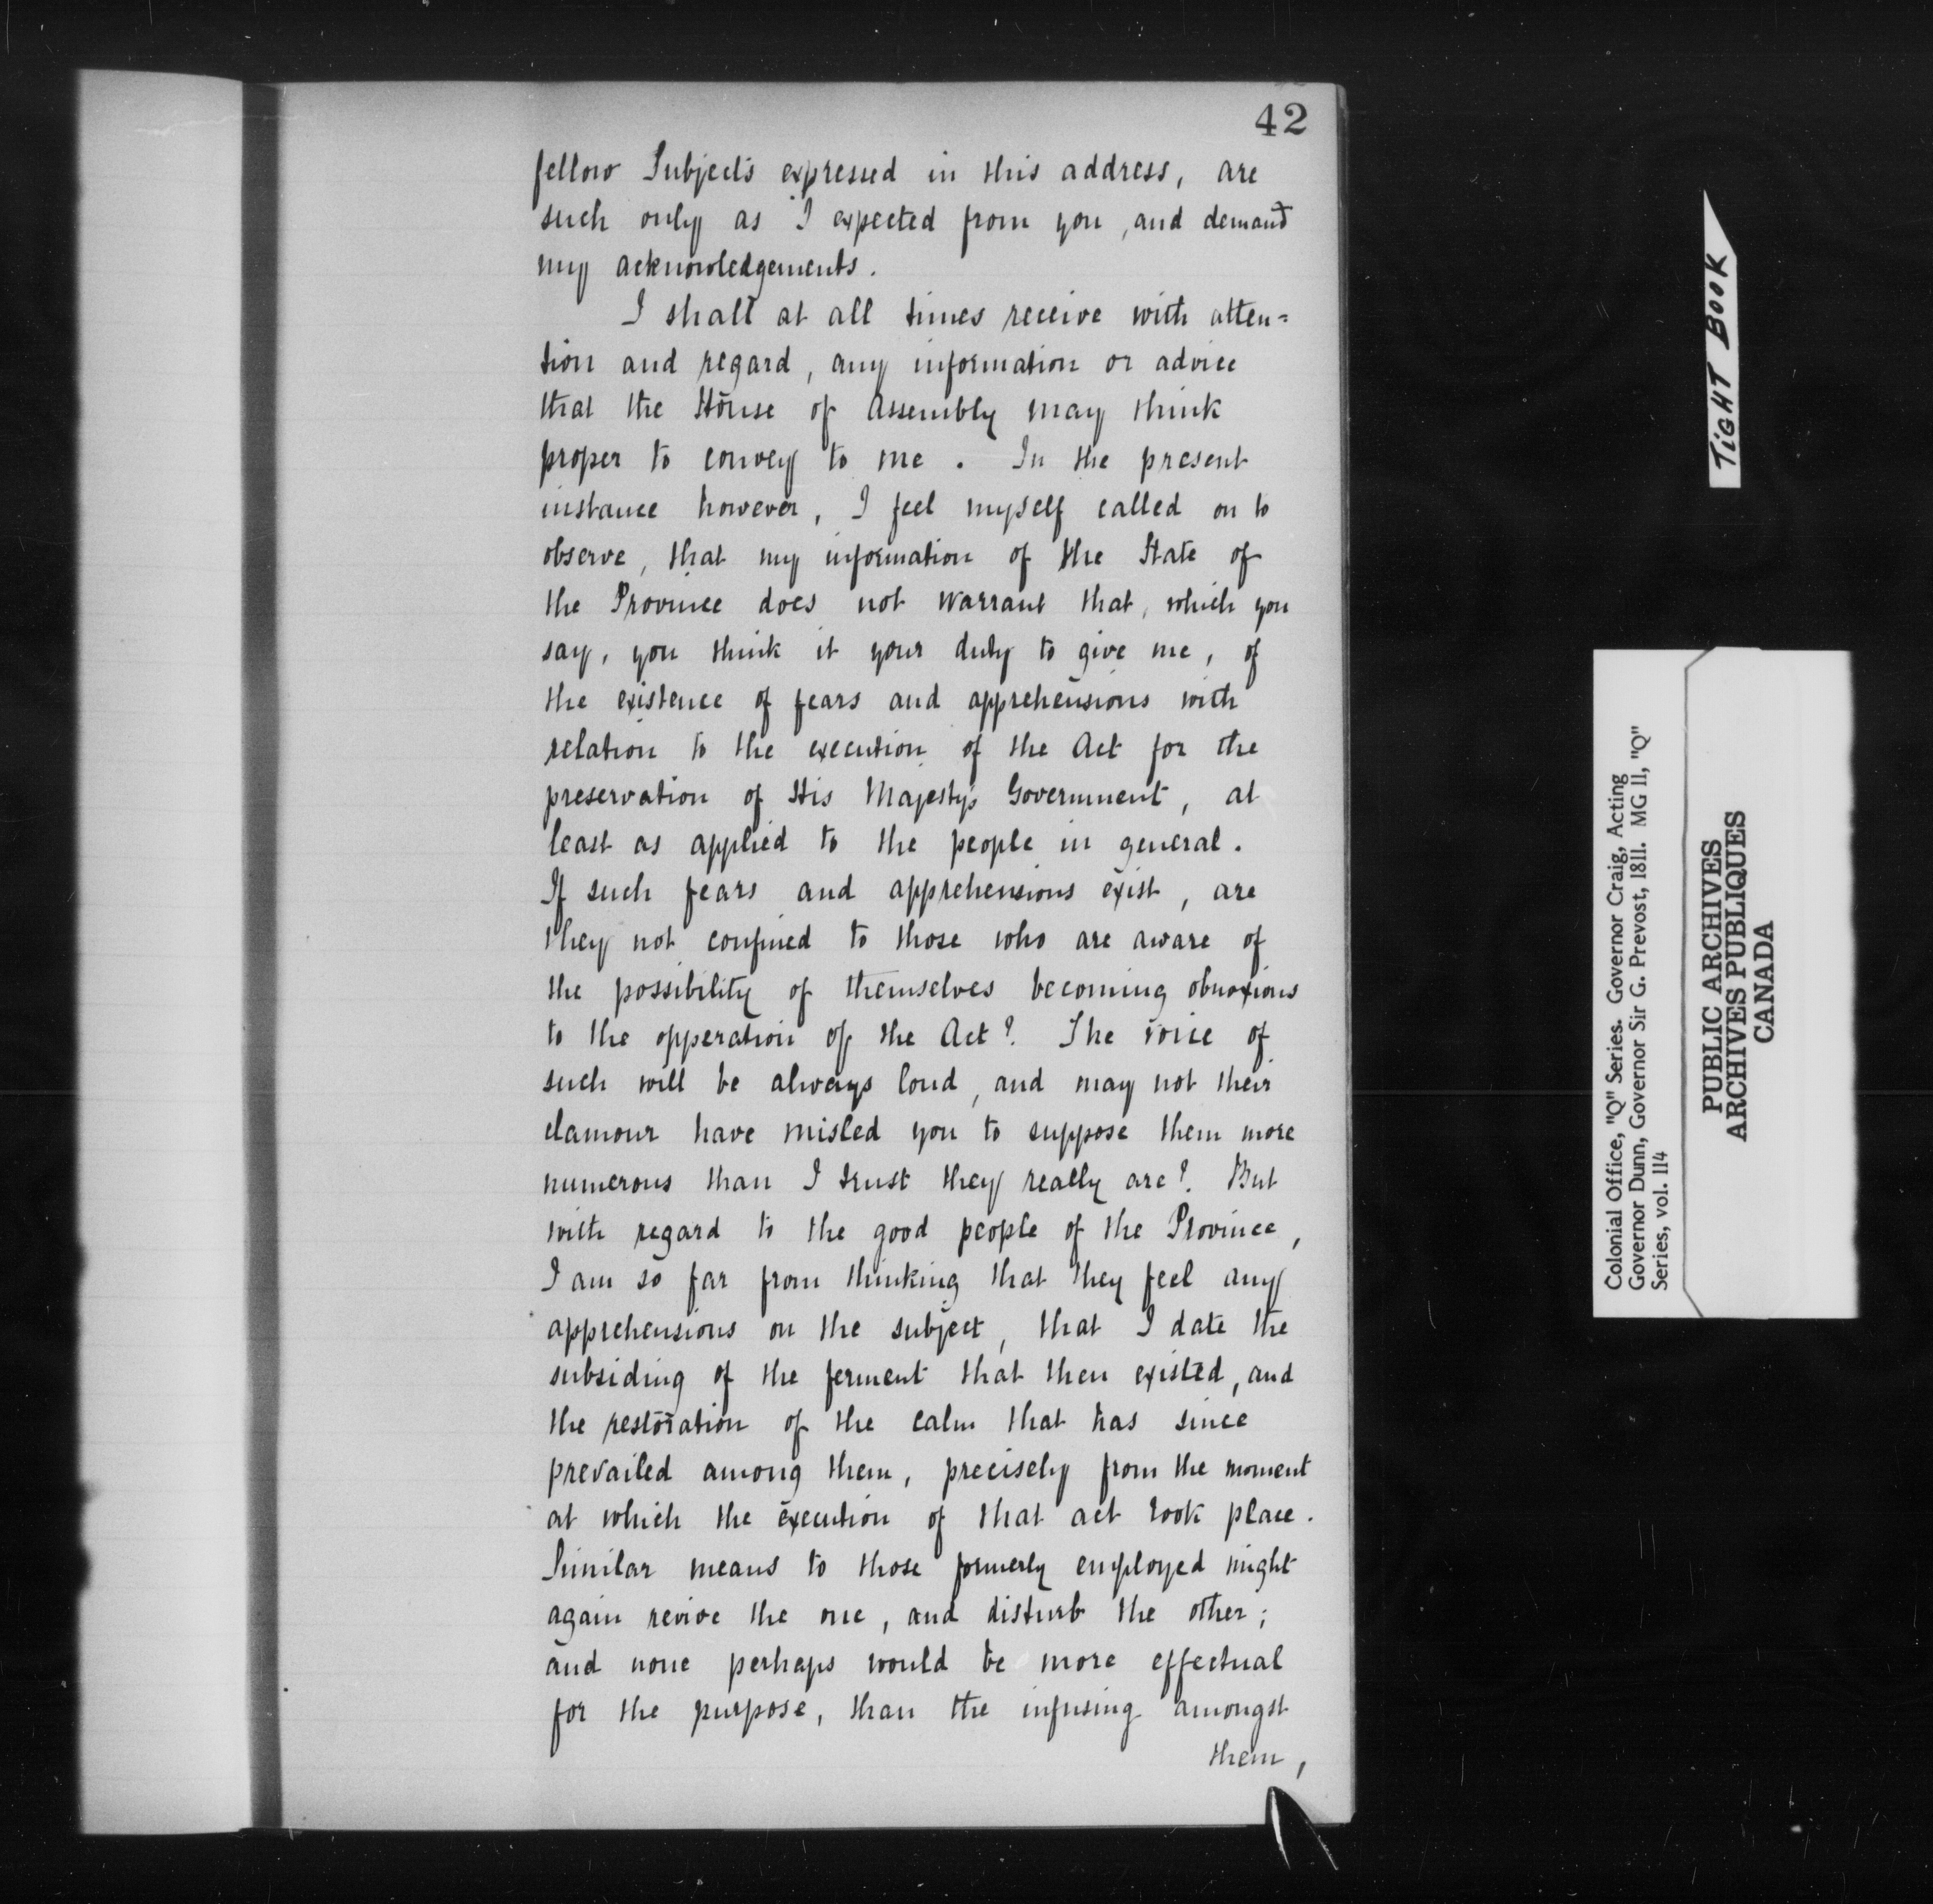 42
fellow Subjects expressed in this address, are
such only as I expected from you, and demand
my acknowledgements.
I shall at all times receive with atten=
tion and regard, any information or advice
that the House of Assembly may think
proper to convey to me. In the present
instance however, I feel myself called on to
observe, that my information of the State of
the Province does not warrant that, which you
say, you think it your duty to give me, of
the existence of fears and apprehensions with
relation to the execution of the Act for the
preservation of His Majesty's Government, at
least as applied to the people in general.
If such fears and apprehensions exist, are
they not confined to those who are aware of
the possibility of themselves becoming obnoxious
to the opperation of the Act? The voice of
such will be always loud, and may not their
clamour have misled you to suppose them more
numerous than I trust they really are? But
with regard to the good people of the Province,
I am so far from thinking that they feel any
apprehensions on the subject, that I date the
subsiding of the ferment that then existed, and
the restoration of the calm that has since
prevailed among them, precisely from the moment
at which the execution of that act took place.
Similar means to those formerly employed might
again revive the one, and disturb the other;
and none perhaps would be more effectual
for the purpose, than the infusing amongst
them,
TIGHT BOOK
Colonial Office, "Q" Series. Governor Craig, Acting
Governor Dunn, Governor Sir G. Prevost, 1811. MG 11, "Q"
Series, vol. 114
PUBLIC ARCHIVES
ARCHIVES PUBLIQUES
CANADA